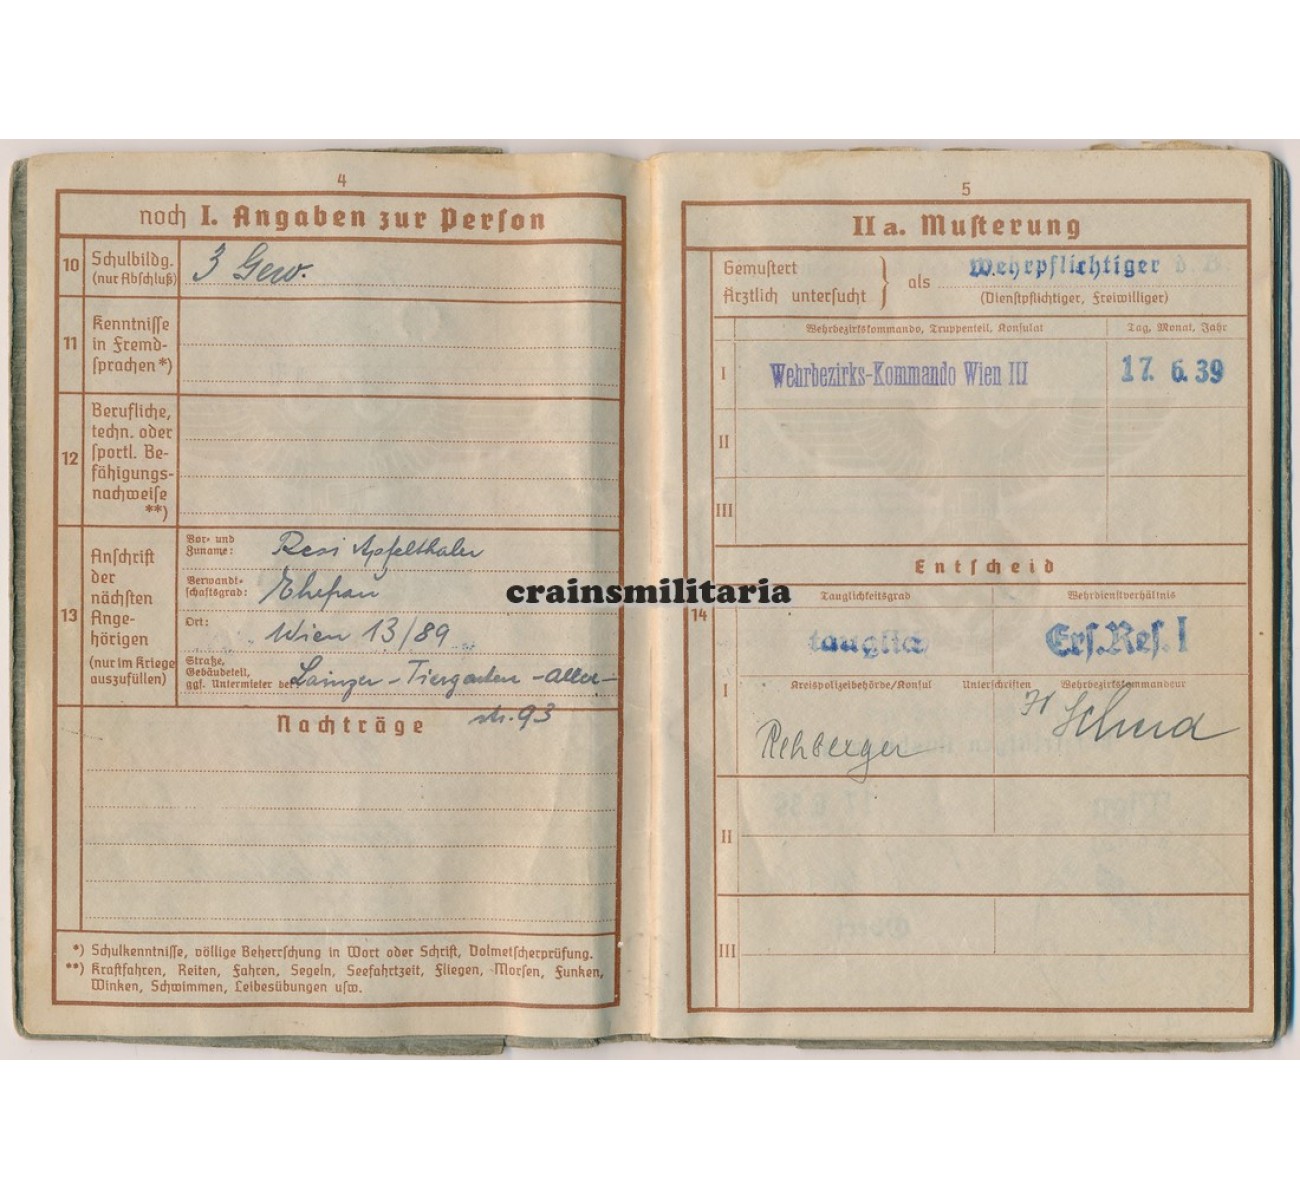 4
noch I. Angaben zur Person
10 Schulbildg. (nur Abschluß)
3 Gew.
11 Kenntnisse in Fremdsprachen *)
12 Berufliche, techn. oder sportl. Befähigungsnachweise **)
13 Anschrift der nächsten Angehörigen (nur im Kriege auszufüllen)
Vor- und Zuname: Resi Apfelthaler
Verwandtschaftsgrad: Ehefrau
Ort: Wien 13/89
Straße, Gebäudeteil, ggf. Untermieter bei: Lainzer-Tiergarten-Aller-
str. 93
Nachträge
*) Schulkenntnisse, völlige Beherrschung in Wort oder Schrift, Dolmetscherprüfung.
**) Kraftfahren, Reiten, Fahren, Segeln, Seefahrtzeit, Fliegen, Morsen, Funken,
Winken, Schwimmen, Leibesübungen usw.
crainsmilitaria
5
IIa. Musterung
Gemustert
Ärztlich untersucht } als Wehrpflichtiger d. B.
(Dienstpflichtiger, Freiwilliger)
Wehrbezirkskommando, Truppenteil, Konsulat Tag, Monat, Jahr
I Wehrbezirks-Kommando Wien III 17. 6. 39
II
III
Entscheid
14 Tauglichkeitsgrad Wehrdienstverhältnis
tauglich Ers. Res. I
I Kreispolizeibehörde/Konsul Unterschriften Wehrbezirkskommandeur
Rehberger
II
III